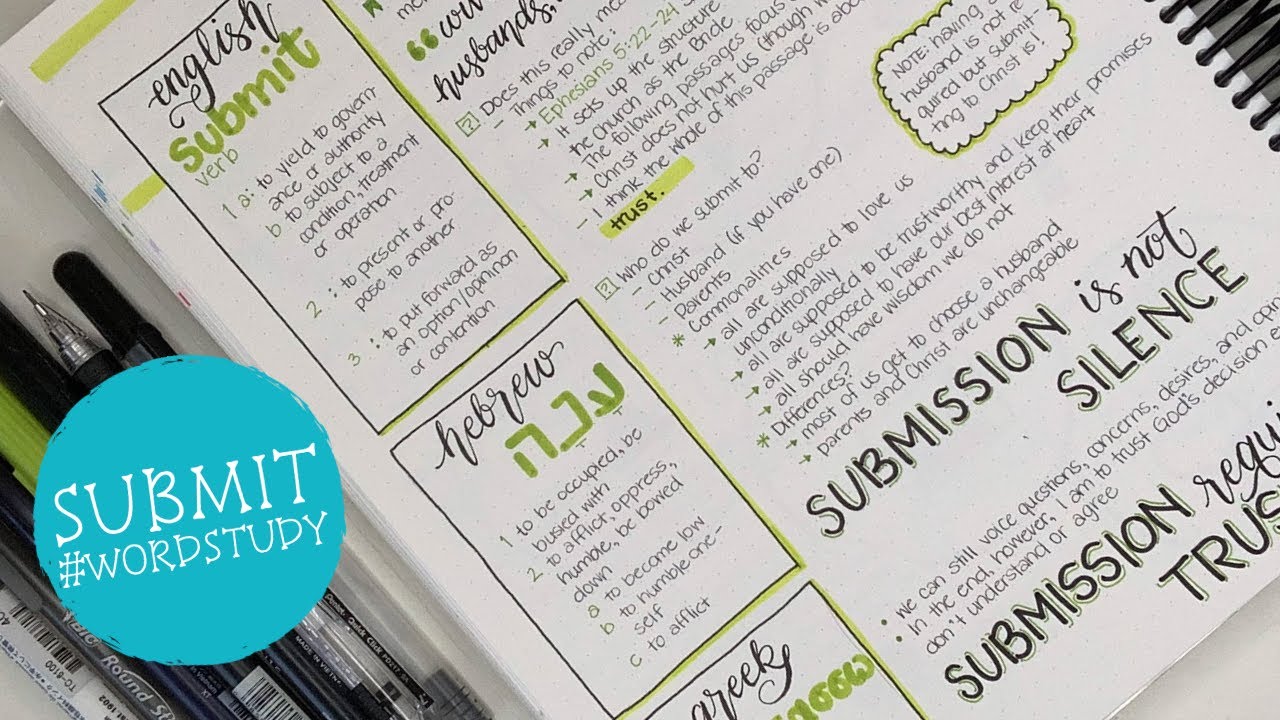 english
submit
verb
1 a: to yield to govern-
ance or authority
b: to subject to a
condition, treatment
or operation
2: to present or pro-
pose to another
3: to put forward as
an option/opinion
or contention
hebrew
עָנָה
1 to be occupied, be
busied with
2 to afflict, oppress,
humble, be bowed
down
a to become low
b to humble one-
self
c to afflict
greek
“
husbands,
? Does this really
- Things to note:
→ Ephesians 5:22-24
→ It sets up the structure
the Church as the Bride
→ The following passages focus
→ Christ does not hurt us (though
- I think the whole of this passage is
trust.
? Who do we submit to?
- Christ
- Husband (if you have one)
- Parents
* Commonalities
→ all are supposed to love us
unconditionally
→ all are supposed to be trustworthy and keep their promises
→ all are supposed to have our best interest at heart
→ all should have wisdom we do not
* Differences?
→ most of us get to choose a husband
→ parents and Christ are unchangeable
NOTE: having a
husband is not re-
quired but submit-
ting to Christ is!
SUBMISSION is not
SILENCE
• we can still voice questions, concerns, desires, and
• In the end, however, I am to trust God's decision
don't understand or agree
SUBMISSION
SUBMIT
#WORDSTUDY